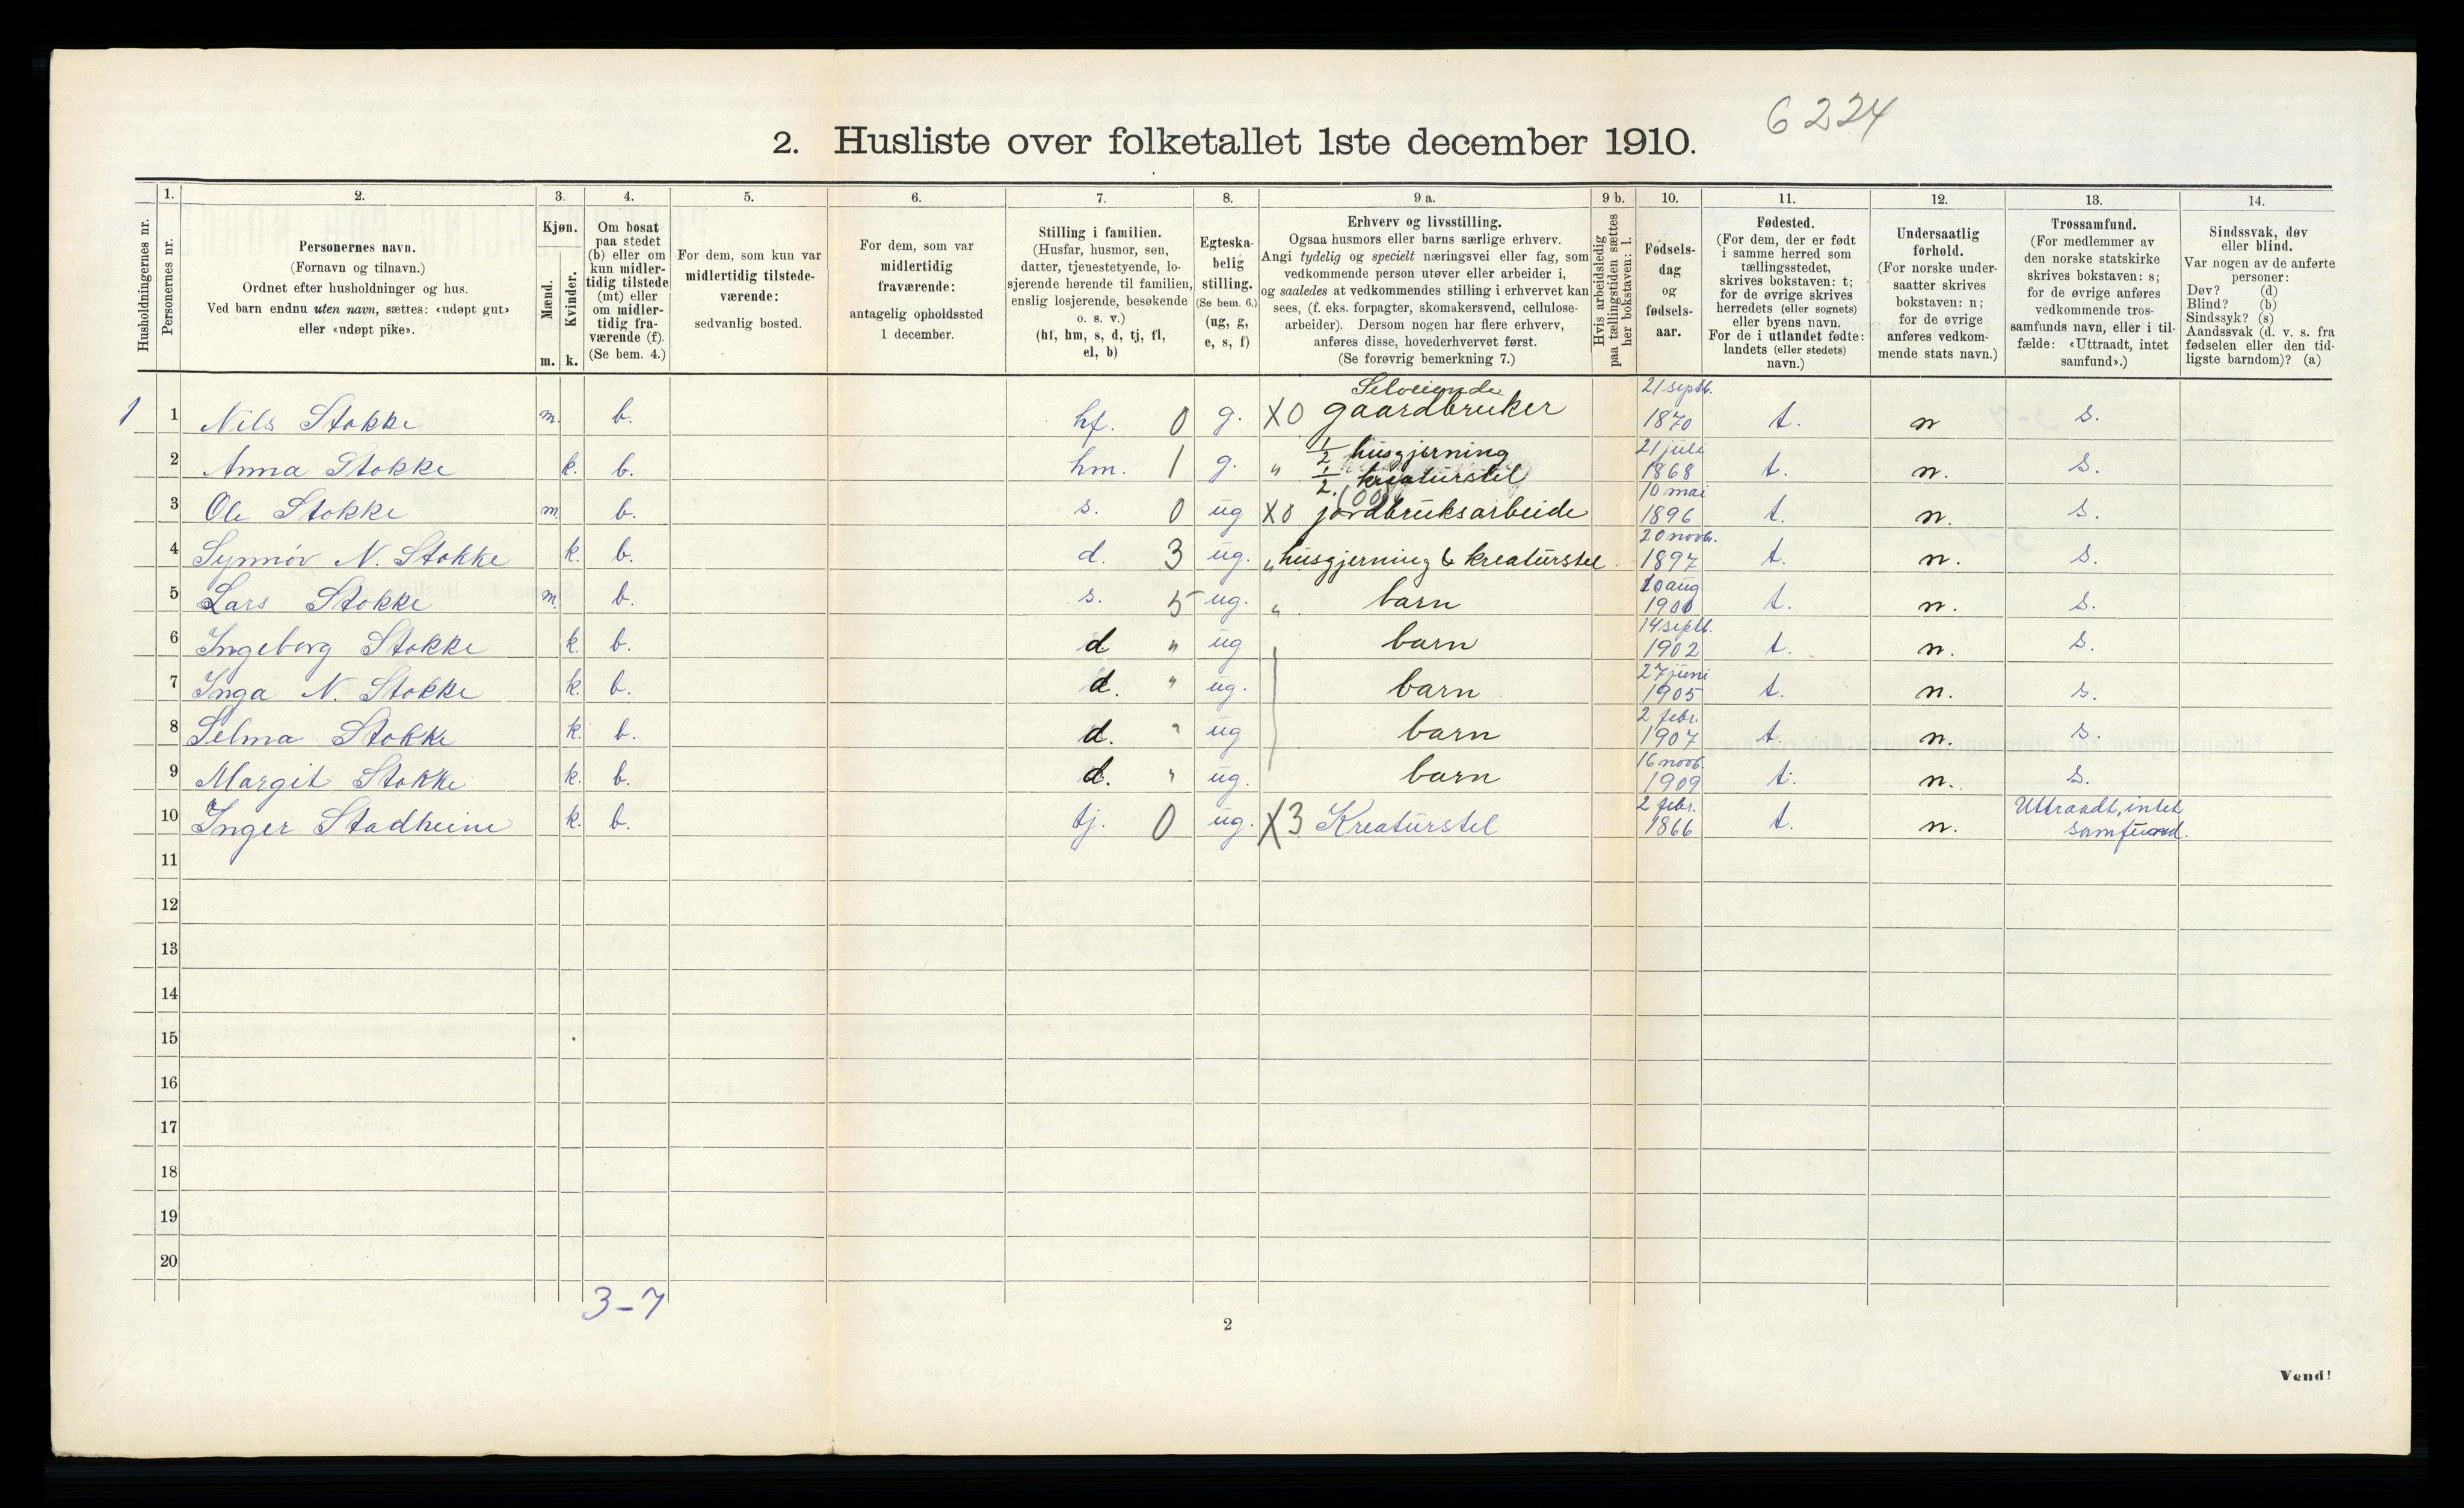 6224
2. Husliste over folketallet 1ste december 1910.
Husholdningernes nr.
1.
Personernes nr.
2.
Personernes navn.
(Fornavn og tilnavn.)
Ordnet efter husholdninger og hus.
Ved barn endnu uten navn, sættes: «udøpt gut»
eller «udøpt pike».
3.
Kjøn.
Mænd.
Kvinder.
m. k.
4.
Om bosat
paa stedet
(b) eller om
kun midler-
tidig tilstede
(mt) eller
om midler-
tidig fra-
værende (f).
(Se bem. 4.)
5.
For dem, som kun var
midlertidig tilstede-
værende:
sedvanlig bosted.
6.
For dem, som var
midlertidig
fraværende:
antagelig opholdssted
1 december.
7.
Stilling i familien.
(Husfar, husmor, søn,
datter, tjenestetyende, lo-
sjerende hørende til familien,
enslig losjerende, besøkende
o. s. v.)
(hf, hm, s, d, tj, fl,
el, b)
8.
Egteska-
belig
stilling.
(Se bem. 6.)
(ug, g,
e, s, f)
9 a.
Erhverv og livsstilling.
Ogsaa husmors eller barns særlige erhverv.
Angi tydelig og specielt næringsvei eller fag, som
vedkommende person utøver eller arbeider i,
og saaledes at vedkommendes stilling i erhvervet kan
sees, (f. eks. forpagter, skomakersvend, cellulose-
arbeider). Dersom nogen har flere erhverv,
anføres disse, hovederhvervet først.
(Se forøvrig bemerkning 7.)
9 b.
Hvis arbeidsledig
paa tællingstiden sættes
her bokstaven: l.
10.
Fødsels-
dag
og
fødsels-
aar.
11.
Fødested.
(For dem, der er født
i samme herred som
tællingsstedet,
skrives bokstaven: t;
for de øvrige skrives
herredets (eller sognets)
eller byens navn.
For de i utlandet fødte:
landets (eller stedets)
navn.)
12.
Undersaatlig
forhold.
(For norske under-
saatter skrives
bokstaven: n;
for de øvrige
anføres vedkom-
mende stats navn.)
13.
Trossamfund.
(For medlemmer av
den norske statskirke
skrives bokstaven: s;
for de øvrige anføres
vedkommende tros-
samfunds navn, eller i til-
fælde: «Uttraadt, intet
samfund».)
14.
Sindssvak, døv
eller blind.
Var nogen av de anførte
personer:
Døv? (d)
Blind? (b)
Sindssyk? (s)
Aandssvak (d. v. s. fra
fødselen eller den tid-
ligste barndom)? (a)
Selveiende 21 septb.
1 1 Nils Stokke m. b. hf. 0 g. X0 gaardbruker 1870 t. n s.
1/2 husgjerning 21 juli
2 Anna Stokke k. b. hm. 1 g. " 1/2 kreaturstel 1868 t. n. s.
10 mai
3 Ole Stokke m. b. s. 0 ug X0 jordbruksarbeide 1896 t. n. s.
20 novb.
4 Synnøv N. Stokke k. b. d. 3 ug. " husgjerning & kreaturstel 1897 t. n. s.
10 aug
5 Lars Stokke m. b. s. 5 ug. " barn 1900 t. n. s.
14 septb.
6 Ingeborg Stokke k. b. d " ug barn 1902 t. n. s.
27 juni
7 Inga N. Stokke k. b. d. " ug. barn 1905 t. n. s.
2 febr.
8 Selma Stokke k. b. d. " ug barn 1907 t. n. s.
16 novb.
9 Margit Stokke k. b. d. " ug. barn 1909 t. n. s.
2 febr. Uttraadt, intet
10 Inger Stadheim k. b. tj. 0 ug. X3 Kreaturstel 1866 t. n. samfund.
11
12
13
14
15
16
17
18
19
20
3-7
2
Vend!